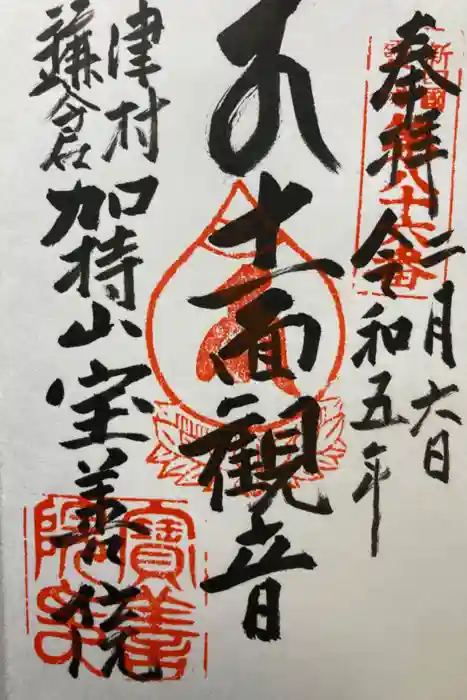 奉拝
令和五年
二月六日
新四國
八十六番
十一面観音
鎌倉
津村
加持山宝善院
寶善
院